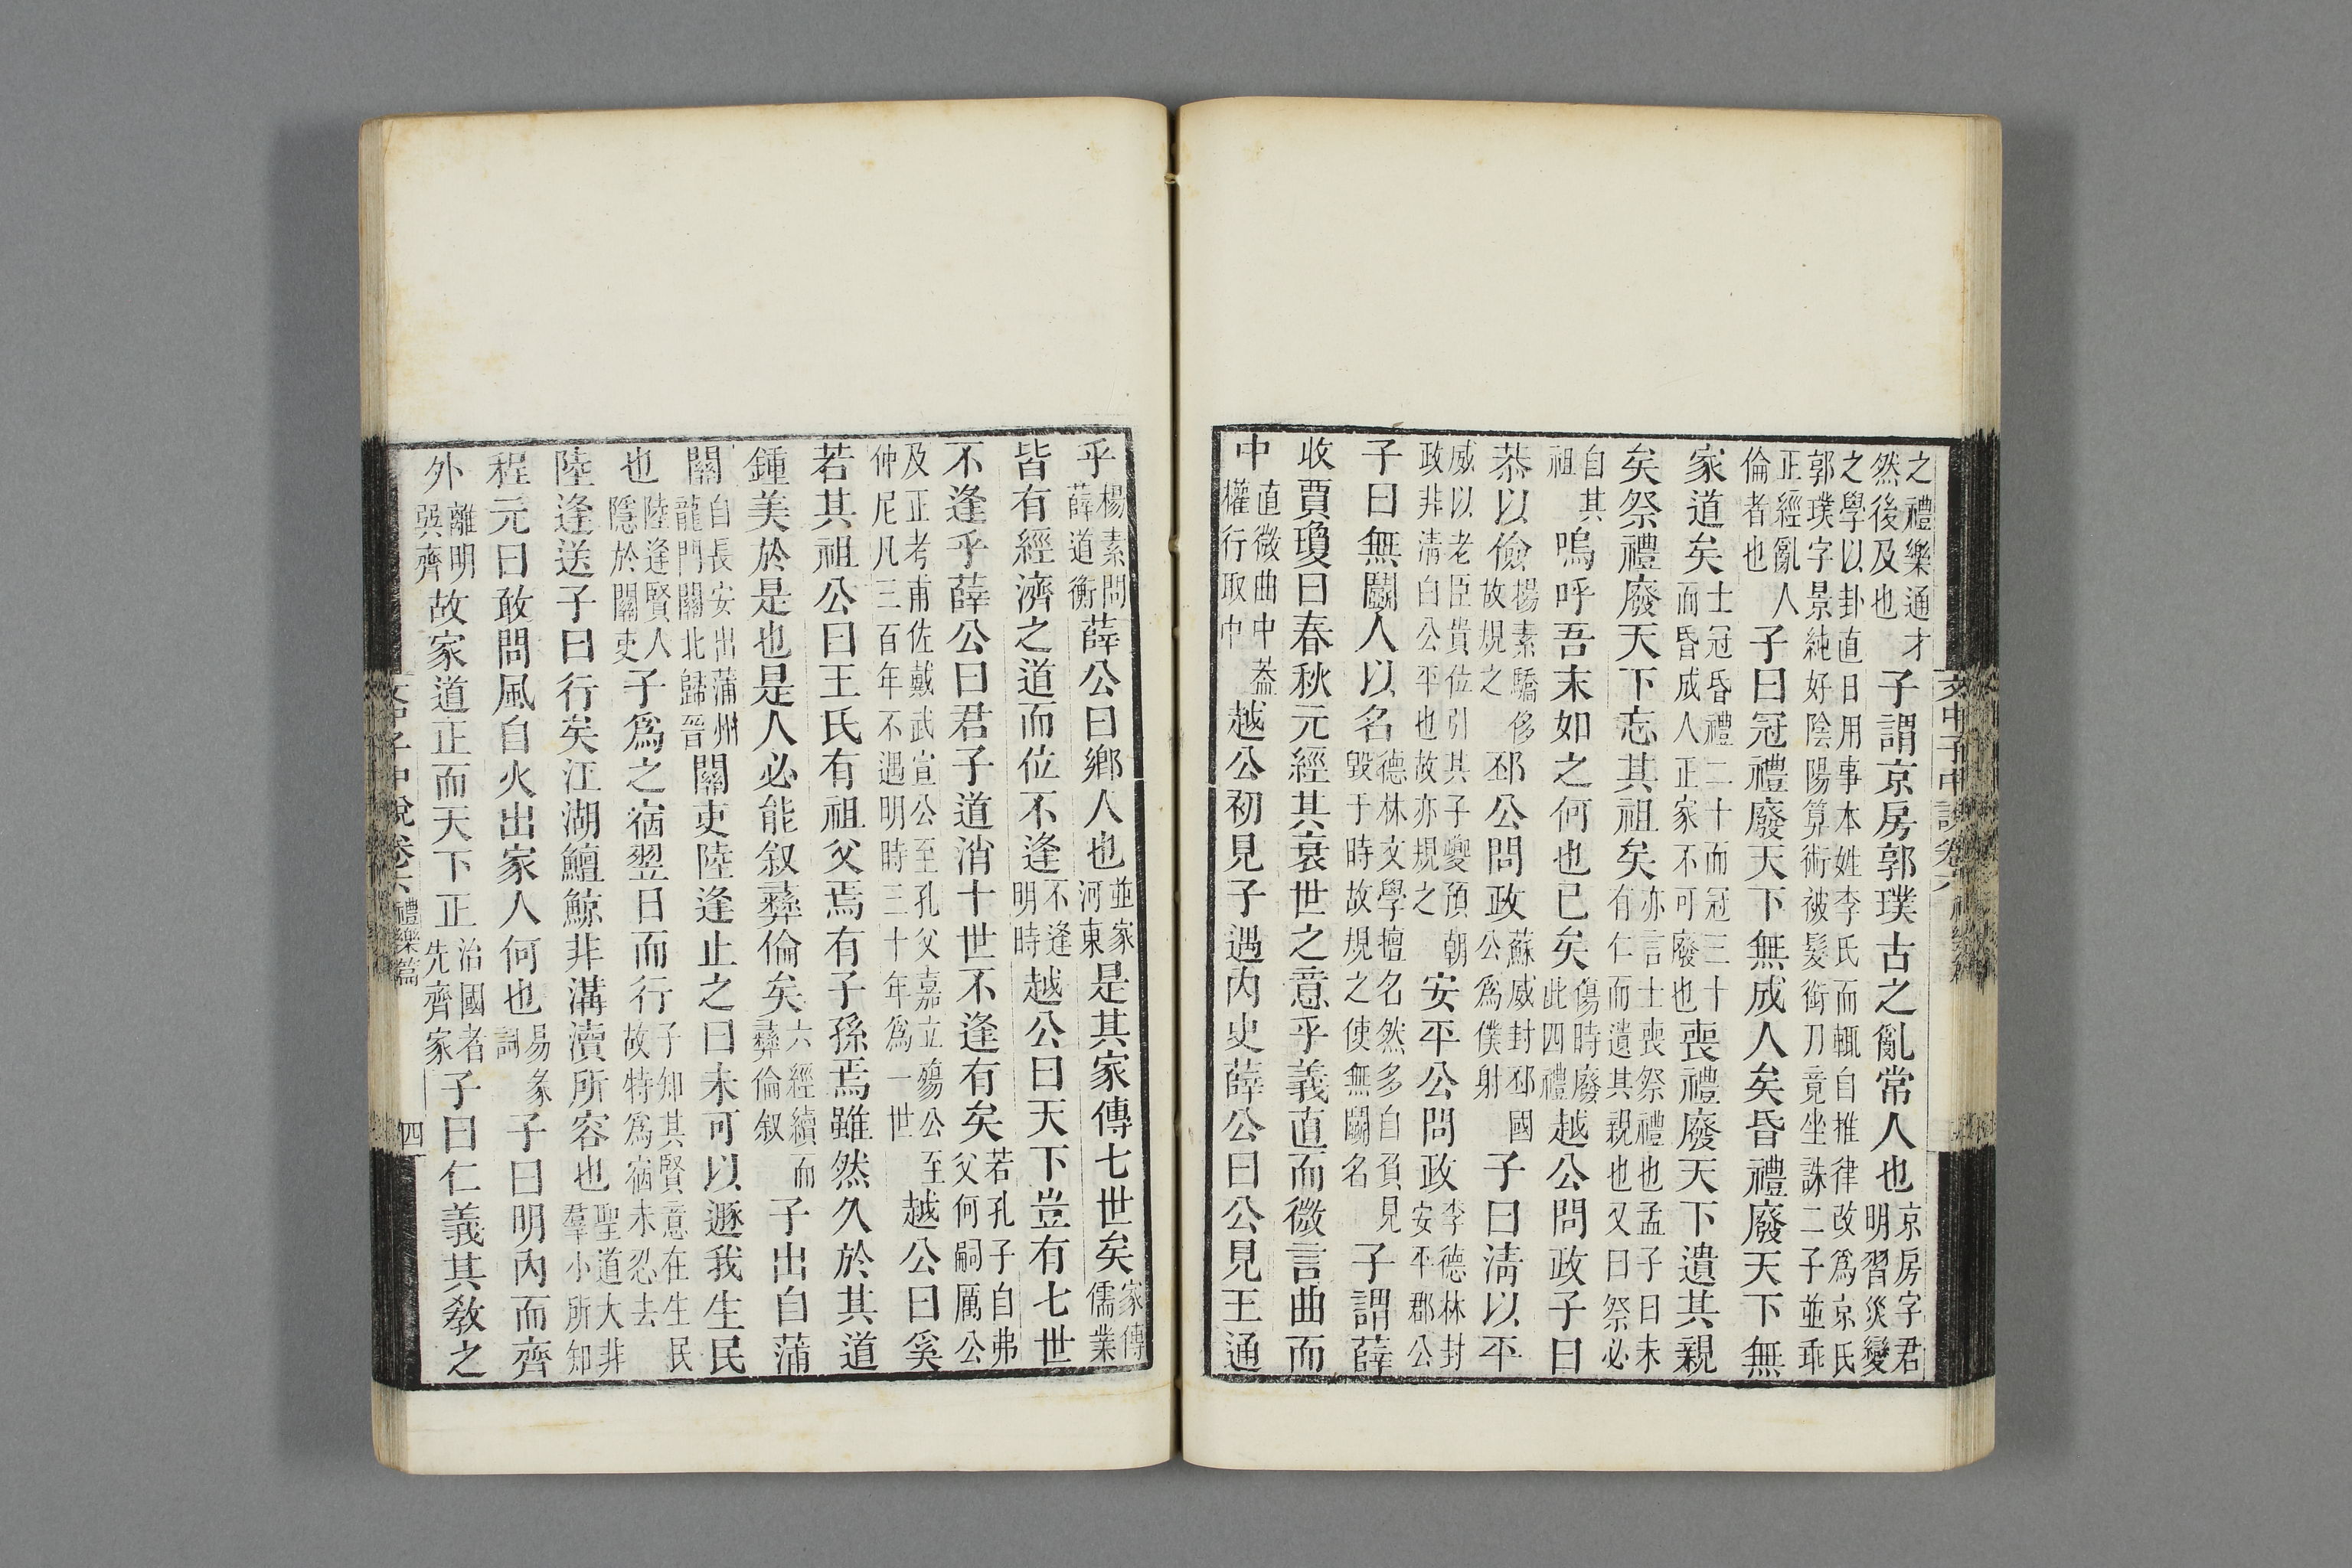 之禮樂通才然後及也子謂京房郭璞古之亂常人也京房字君明習災變
之學以卦直日用事本姓李氏而輒自推律改爲京氏郭璞字景純好陰陽算術被髮銜刀竟坐誅二子並乖
正經亂人倫者也子曰冠禮廢天下無成人矣昏禮廢天下無
家道矣士冠昏禮二十而冠三十而昏成人正家不可廢也喪禮廢天下遺其親
矣祭禮廢天下忘其祖矣亦言士喪祭禮也孟子曰未有仁而遺其親也又曰祭必
自其祖嗚呼吾末如之何也已矣傷時廢此四禮越公問政子曰
恭以儉楊素驕侈故規之邳公問政蘇威封邳國公爲僕射子曰清以平
威以老臣貴位引其子夔預朝政非清白公平也故亦規之安平公問政李德林封安平郡公
子曰無鬭人以名德林文學擅名然多自負見毀于時故規之使無鬭名子謂薛
收賈瓊曰春秋元經其衰世之意乎義直而微言曲而
中直微曲中蓋權行取中越公初見子遇内史薛公曰公見王通
乎楊素問薛道衡薛公曰鄉人也並家河東是其家傳七世矣家傳儒業
皆有經濟之道而位不逢不逢明時越公曰天下豈有七世
不逢乎薛公曰君子道消十世不逢有矣若孔子自弗父何嗣厲公
及正考甫佐戴武宣公至孔父嘉立殤公至仲尼凡三百年不遇明時三十年爲一世越公曰奚
若其祖公曰王氏有祖父焉有子孫焉雖然久於其道
鍾美於是也是人必能叙彝倫矣六經續而彝倫叙子出自蒲
關自長安出蒲州龍門關北歸晉關吏陸逢止之曰未可以遯我生民
也陸逢賢人隱於關吏子爲之宿翌日而行子知其賢意在生民故特爲宿未忍去
陸逢送子曰行矣江湖鱣鯨非溝瀆所容也聖道大非羣小所知
程元曰敢問風自火出家人何也易彖詞子曰明内而齊
外離明巽齊故家道正而天下正治國者先齊家子曰仁義其敎之
文中子中說卷六 禮樂篇 四